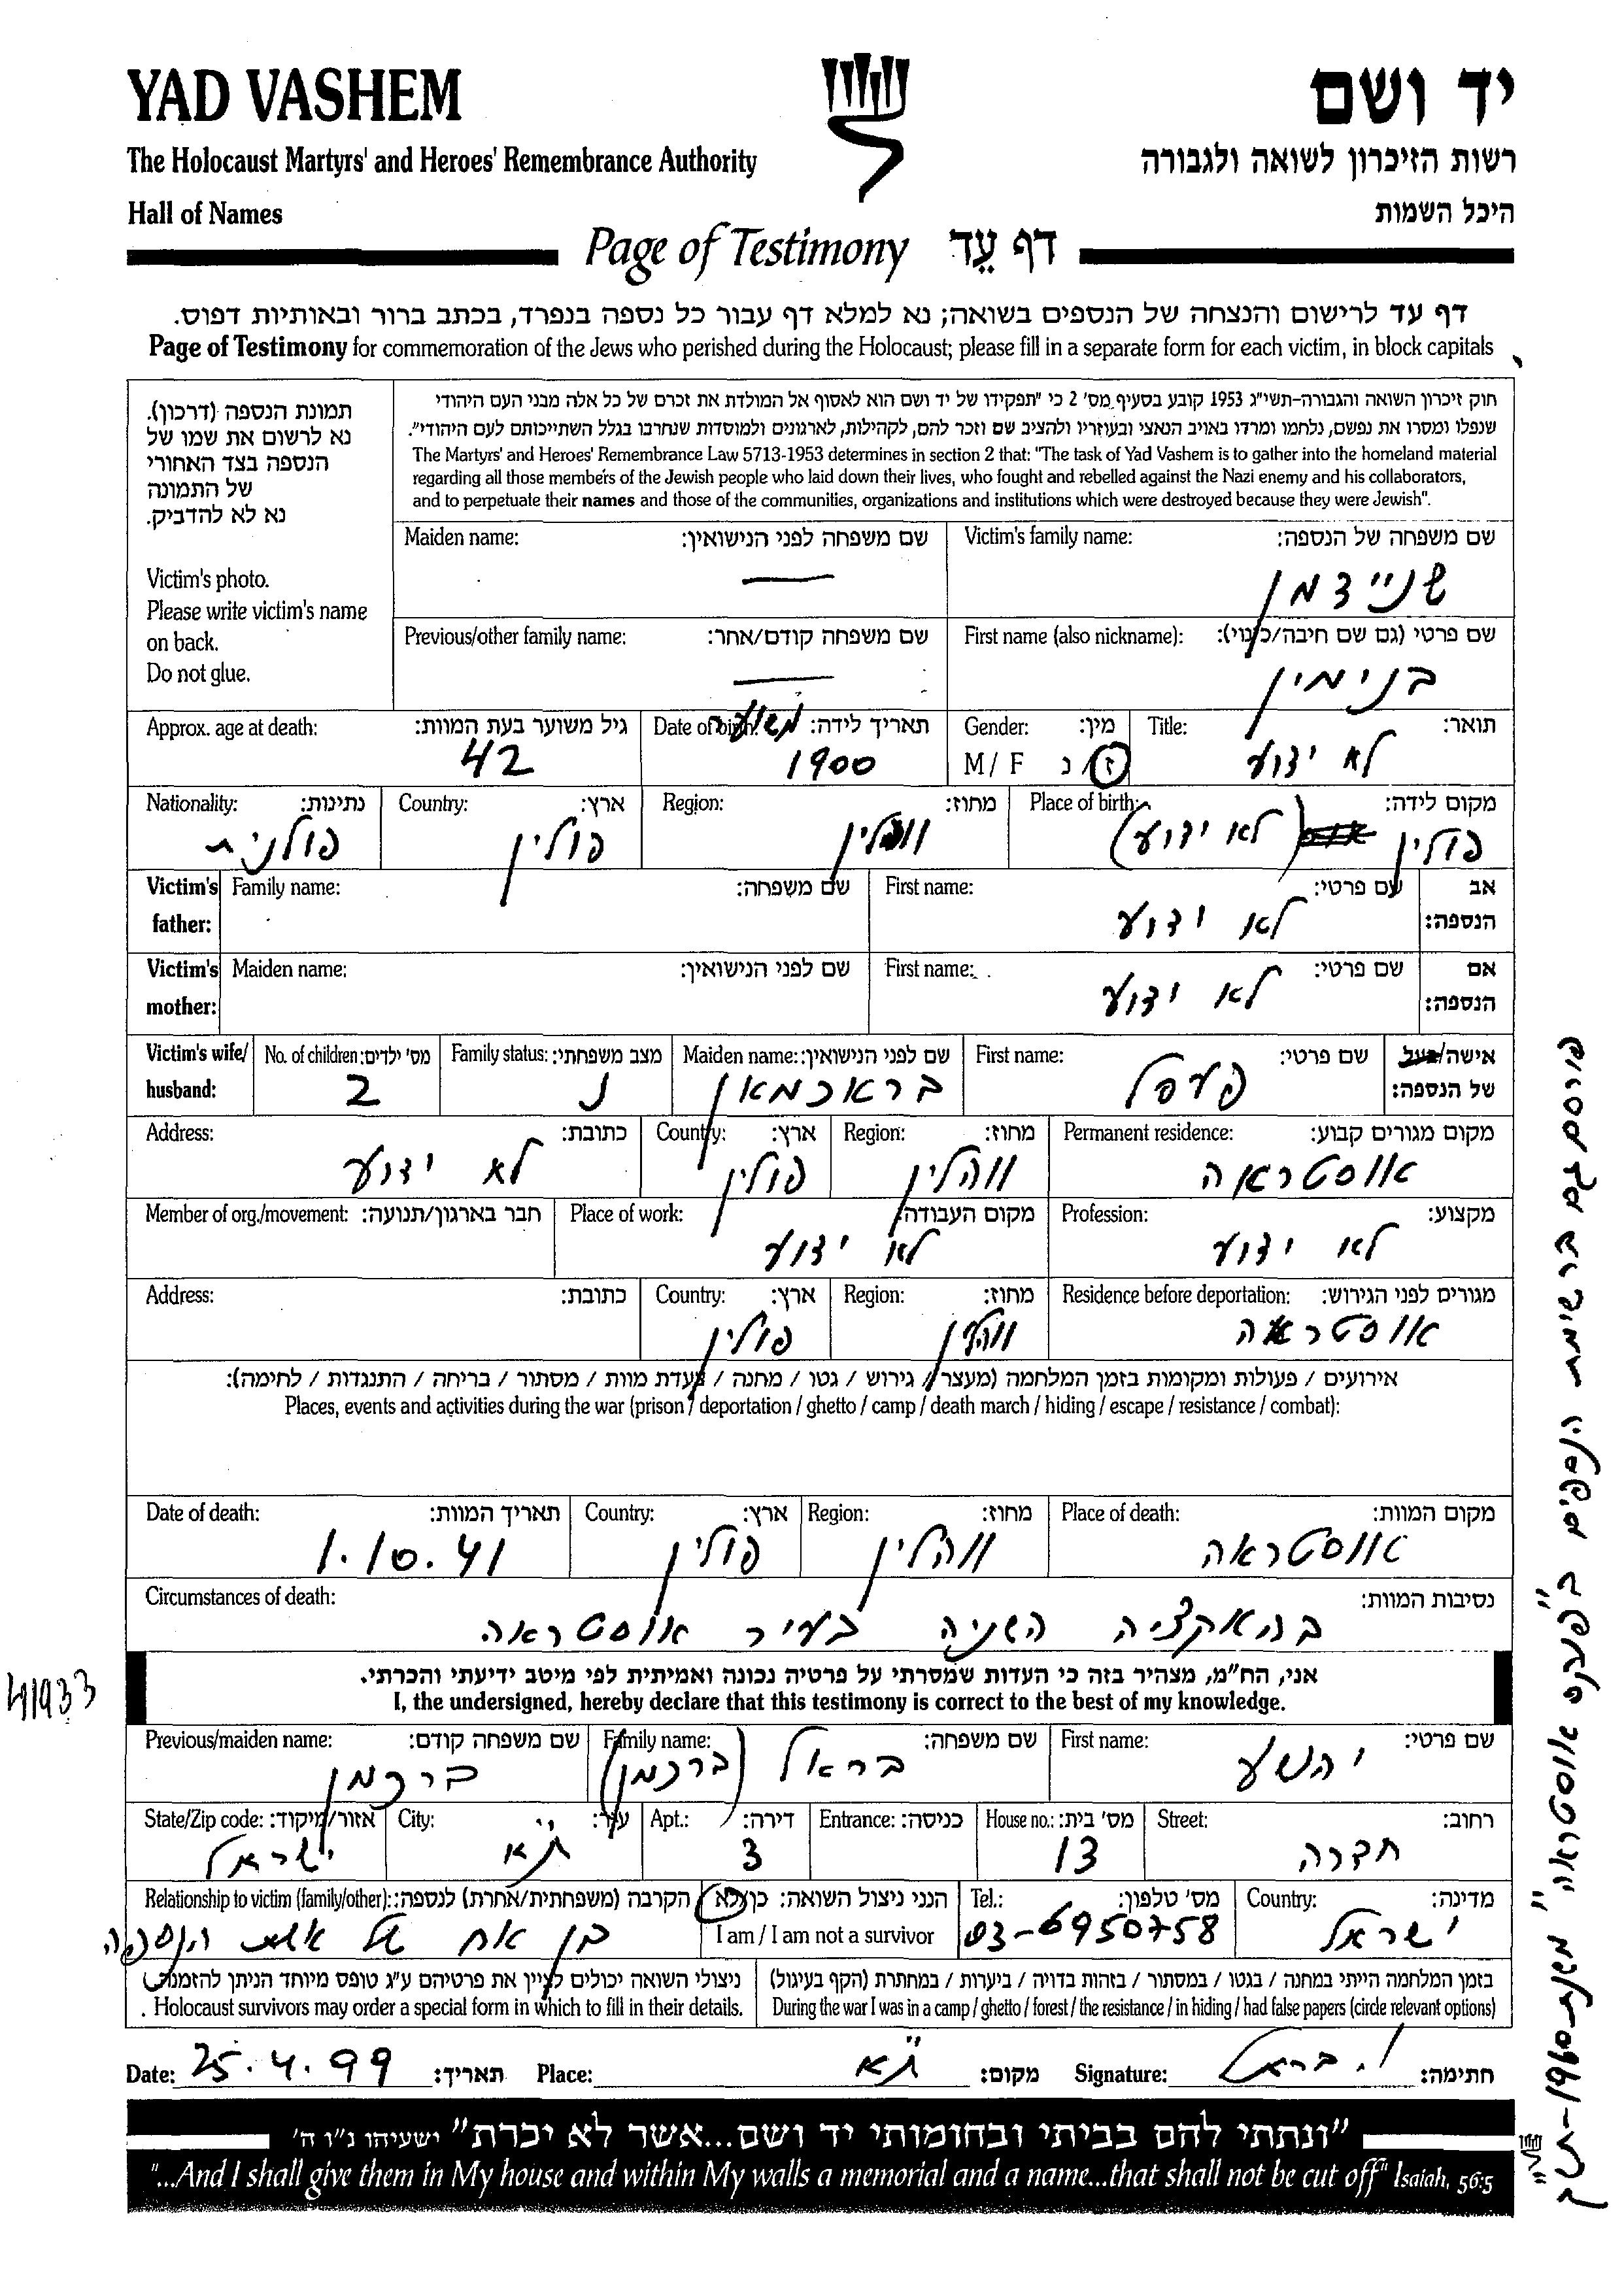 YAD VASHEM
יד ושם
The Holocaust Martyrs' and Heroes' Remembrance Authority
רשות הזיכרון לשואה ולגבורה
Hall of Names
היכל השמות
Page of Testimony דף עֵד
דף עד לרישום והנצחה של הנספים בשואה; נא למלא דף עבור כל נספה בנפרד, בכתב ברור ובאותיות דפוס.
Page of Testimony for commemoration of the Jews who perished during the Holocaust; please fill in a separate form for each victim, in block capitals
תמונת הנספה (דרכון).
נא לרשום את שמו של
הנספה בצד האחורי
של התמונה
נא לא להדביק.
Victim's photo.
Please write victim's name
on back.
Do not glue.
חוק זיכרון השואה והגבורה-תשי"ג 1953 קובע בסעיף מס' 2 כי "תפקידו של יד ושם הוא לאסוף אל המולדת את זכרם של כל אלה מבני העם היהודי
שנפלו ומסרו את נפשם, נלחמו ומרדו באויב הנאצי ובעוזריו ולהציב שם וזכר להם, לקהילות, לארגונים ולמוסדות שנחרבו בגלל השתייכותם לעם היהודי".
The Martyrs' and Heroes' Remembrance Law 5713-1953 determines in section 2 that: "The task of Yad Vashem is to gather into the homeland material
regarding all those members of the Jewish people who laid down their lives, who fought and rebelled against the Nazi enemy and his collaborators,
and to perpetuate their names and those of the communities, organizations and institutions which were destroyed because they were Jewish".
Victim's family name: שם משפחה של הנספה:
שניידמן
Maiden name: שם משפחה לפני הנישואין:
—
First name (also nickname): שם פרטי (גם שם חיבה/כינוי):
בנימין
Previous/other family name: שם משפחה קודם/אחר:
—
Title: תואר:
לא ידוע
Gender: מין:
M / F ז / נ
Date of birth: תאריך לידה: משוער
1900
Approx. age at death: גיל משוער בעת המוות:
42
Place of birth: מקום לידה:
פולין (לא ידוע)
Region: מחוז:
ווהלין
Country: ארץ:
פולין
Nationality: נתינות:
פולנית
Victim's father: אב הנספה:
First name: שם פרטי:
לא ידוע
Family name: שם משפחה:
Victim's mother: אם הנספה:
First name: שם פרטי:
לא ידוע
Maiden name: שם לפני הנישואין:
Victim's wife/ husband: אישה/בעל של הנספה:
First name: שם פרטי:
פערל
Maiden name: שם לפני הנישואין:
בראכמאן
Family status: מצב משפחתי:
נ
No. of children: מס' ילדים:
2
Permanent residence: מקום מגורים קבוע:
אווסטראה
Region: מחוז:
ווהלין
Country: ארץ:
פולין
Address: כתובת:
לא ידוע
Profession: מקצוע:
לא ידוע
Place of work: מקום העבודה:
לא ידוע
Member of org./movement: חבר בארגון/תנועה:
Residence before deportation: מגורים לפני הגירוש:
אווסטראה
Region: מחוז:
ווהלין
Country: ארץ:
פולין
Address: כתובת:
אירועים / פעולות ומקומות בזמן המלחמה (מעצר / גירוש / גטו / מחנה / צעדת מוות / מסתור / בריחה / התנגדות / לחימה):
Places, events and activities during the war (prison / deportation / ghetto / camp / death march / hiding / escape / resistance / combat):
Place of death: מקום המוות:
אווסטראה
Region: מחוז:
ווהלין
Country: ארץ:
פולין
Date of death: תאריך המוות:
1.10.41
Circumstances of death: נסיבות המוות:
בהאקציה השניה בעיר אווסטראה
אני, הח"מ, מצהיר בזה כי העדות שמסרתי על פרטיה נכונה ואמיתית לפי מיטב ידיעתי והכרתי.
I, the undersigned, hereby declare that this testimony is correct to the best of my knowledge.
41933
First name: שם פרטי:
יהושע
Family name: שם משפחה:
בראל (ברכמן)
Previous/maiden name: שם משפחה קודם:
ברכמן
Street: רחוב:
חדרה
House no.: מס' בית:
13
Entrance: כניסה:
Apt.: דירה:
3
City: עיר:
ת"א
State/Zip code: אזור/מיקוד:
ישראל
Country: מדינה:
ישראל
Tel.: מס' טלפון:
03-6950758
הנני ניצול השואה: כן/לא
I am / I am not a survivor
Relationship to victim (family/other): הקרבה (משפחתית/אחרת) לנספה:
בן אח של אשת הנספה
בזמן המלחמה הייתי במחנה / בגטו / במסתור / בזהות בדויה / ביערות / במחתרת (הקף בעיגול)
During the war I was in a camp / ghetto / forest / the resistance / in hiding / had false papers (circle relevant options)
ניצולי השואה יכולים לציין את פרטיהם ע"ג טופס מיוחד הניתן להזמנה.
Holocaust survivors may order a special form in which to fill in their details.
Date: 25.4.99 תאריך: Place: ת"א מקום: Signature: י. בראל חתימה:
"ונתתי להם בביתי ובחומותי יד ושם...אשר לא יכרת" ישעיהו נ"ו ה'
"...And I shall give them in My house and within My walls a memorial and a name...that shall not be cut off" Isaiah, 56:5
פורסם גם ברשימת הנספים ב"פנקס אווסטראה" משנת 1960-תש"ך